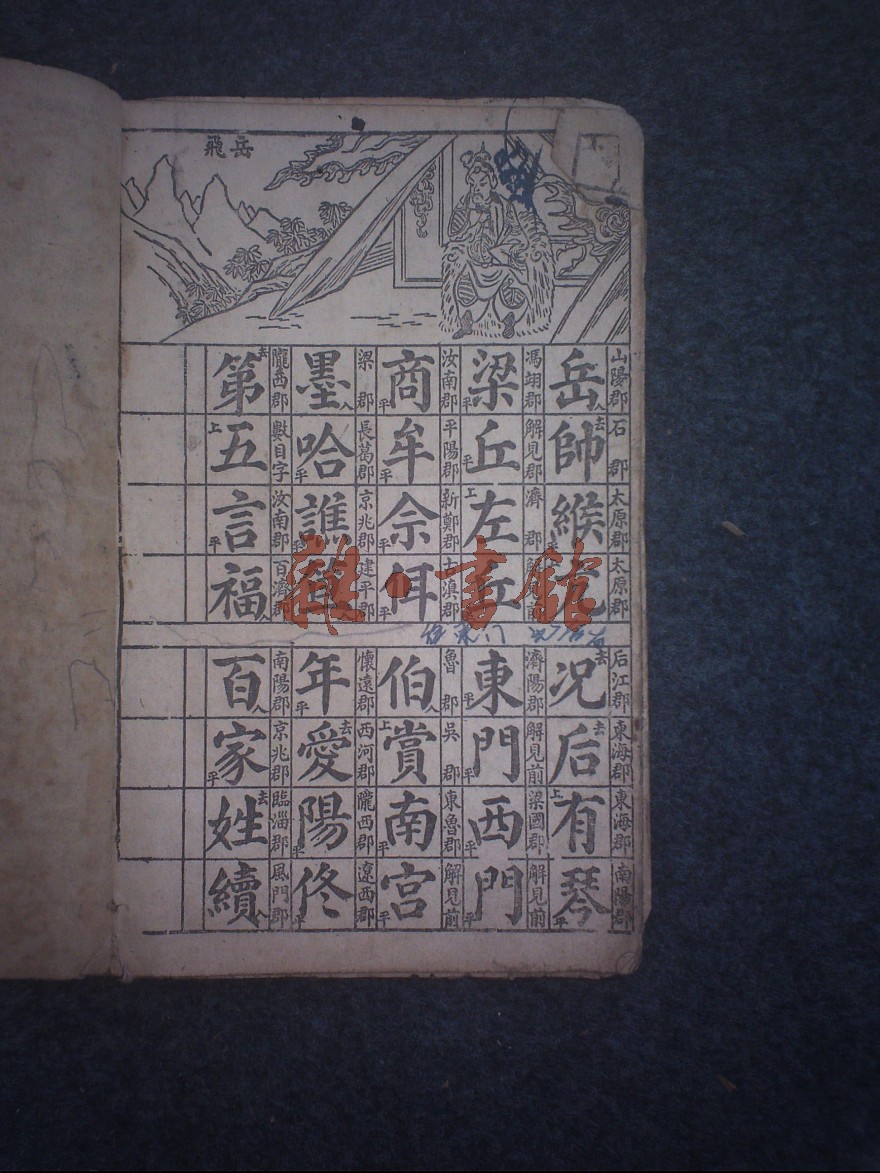 岳飛
山陽郡 石郡 太原郡 太原郡 后江郡 東海郡 東海郡 南陽郡
岳帥緱亢 况后有琴
馮翊郡 解見郡 濟郡 解見前 濟陽郡 解見前 梁國郡 解見前
梁丘左丘 東門西門
汝南郡 平陽郡 新鄭郡 滇郡 魯郡 吳郡 東魯郡 解見前
商牟佘佴 伯賞南宮
梁郡 長葛郡 京兆郡 建平郡 懷遠郡 西河郡 隴西郡 遼西郡
墨哈譙 年愛陽佟
隴西郡 數目字 汝南郡 百濟郡 南陽郡 京兆郡 臨淄郡 風門郡
第五言福 百家姓續
雜·書館